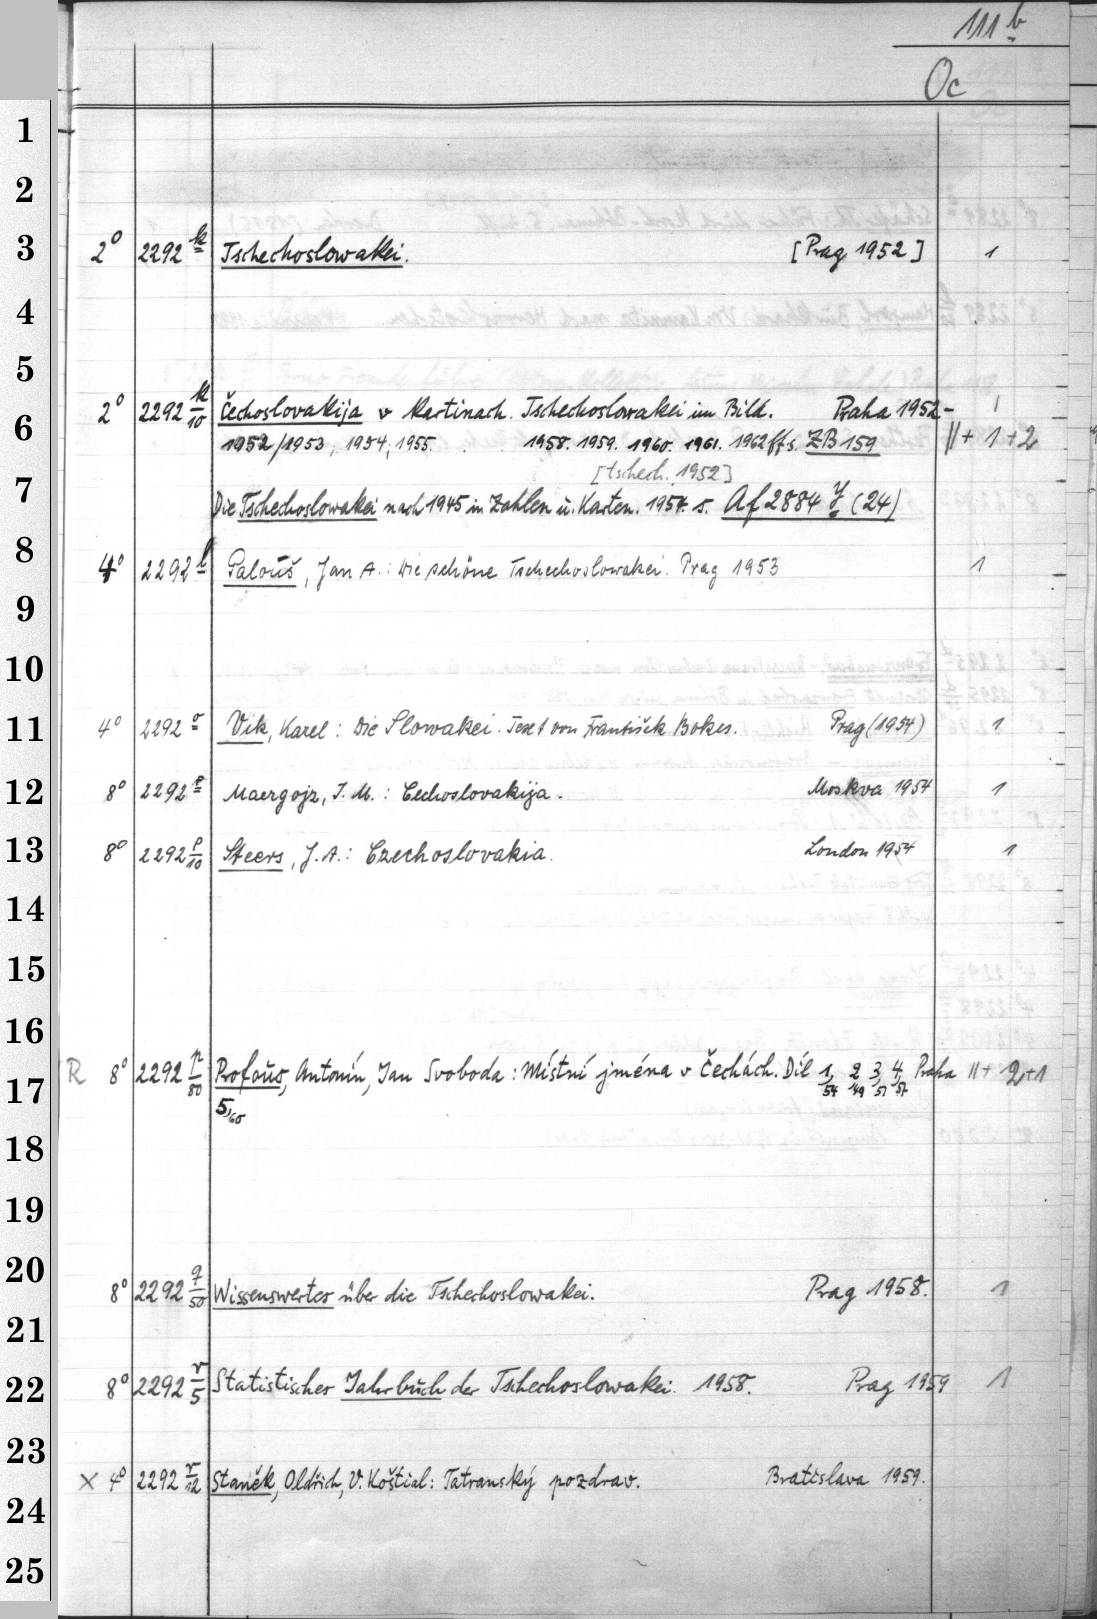 111 b
Oc
1
2
3 2° 2292 k Tschechoslowakei. [Prag 1952] 1
4
5
6 2° 2292 k/10 Čechoslovakija v kartinach. Tschechoslowakei im Bild. Praha 1952- 1
1952/1953, 1954, 1955. 1958. 1959. 1960. 1961. 1962ff s. ZB 159 II + 1 + 2
[tschech. 1952]
7 Die Tschechoslowakei nach 1945 in Zahlen u. Karten. 1954. s. Af 2884 y (24)
8 4° 2292 l Palouš, Jan A.: Die schöne Tschechoslowakei. Prag 1953 1
9
10
11 4° 2292 o Vik, Karel: Die Slowakei. Text von František Bokes. Prag (1954) 1
12 8° 2292 p Maergojz, I. M.: Čechoslovakija. Moskva 1954 1
13 8° 2292 p/10 Steers, J. A.: Czechoslovakia. London 1954 1
14
15
16
17 R 8° 2292 p/80 Profous, Antonín, Jan Svoboda: Místní jména v Čechách. Díl 1,54 2,49 3,51 4,57 Praha II + 2 + 1
5,60
18
19
20 8° 2292 q/50 Wissenswertes über die Tschechoslowakei. Prag 1958. 1
21
22 8° 2292 r/5 Statistisches Jahrbuch der Tschechoslowakei. 1958. Prag 1959 1
23
24 × 4° 2292 r/12 Staněk, Oldřich, V. Koštial: Tatranský pozdrav. Bratislava 1959.
25